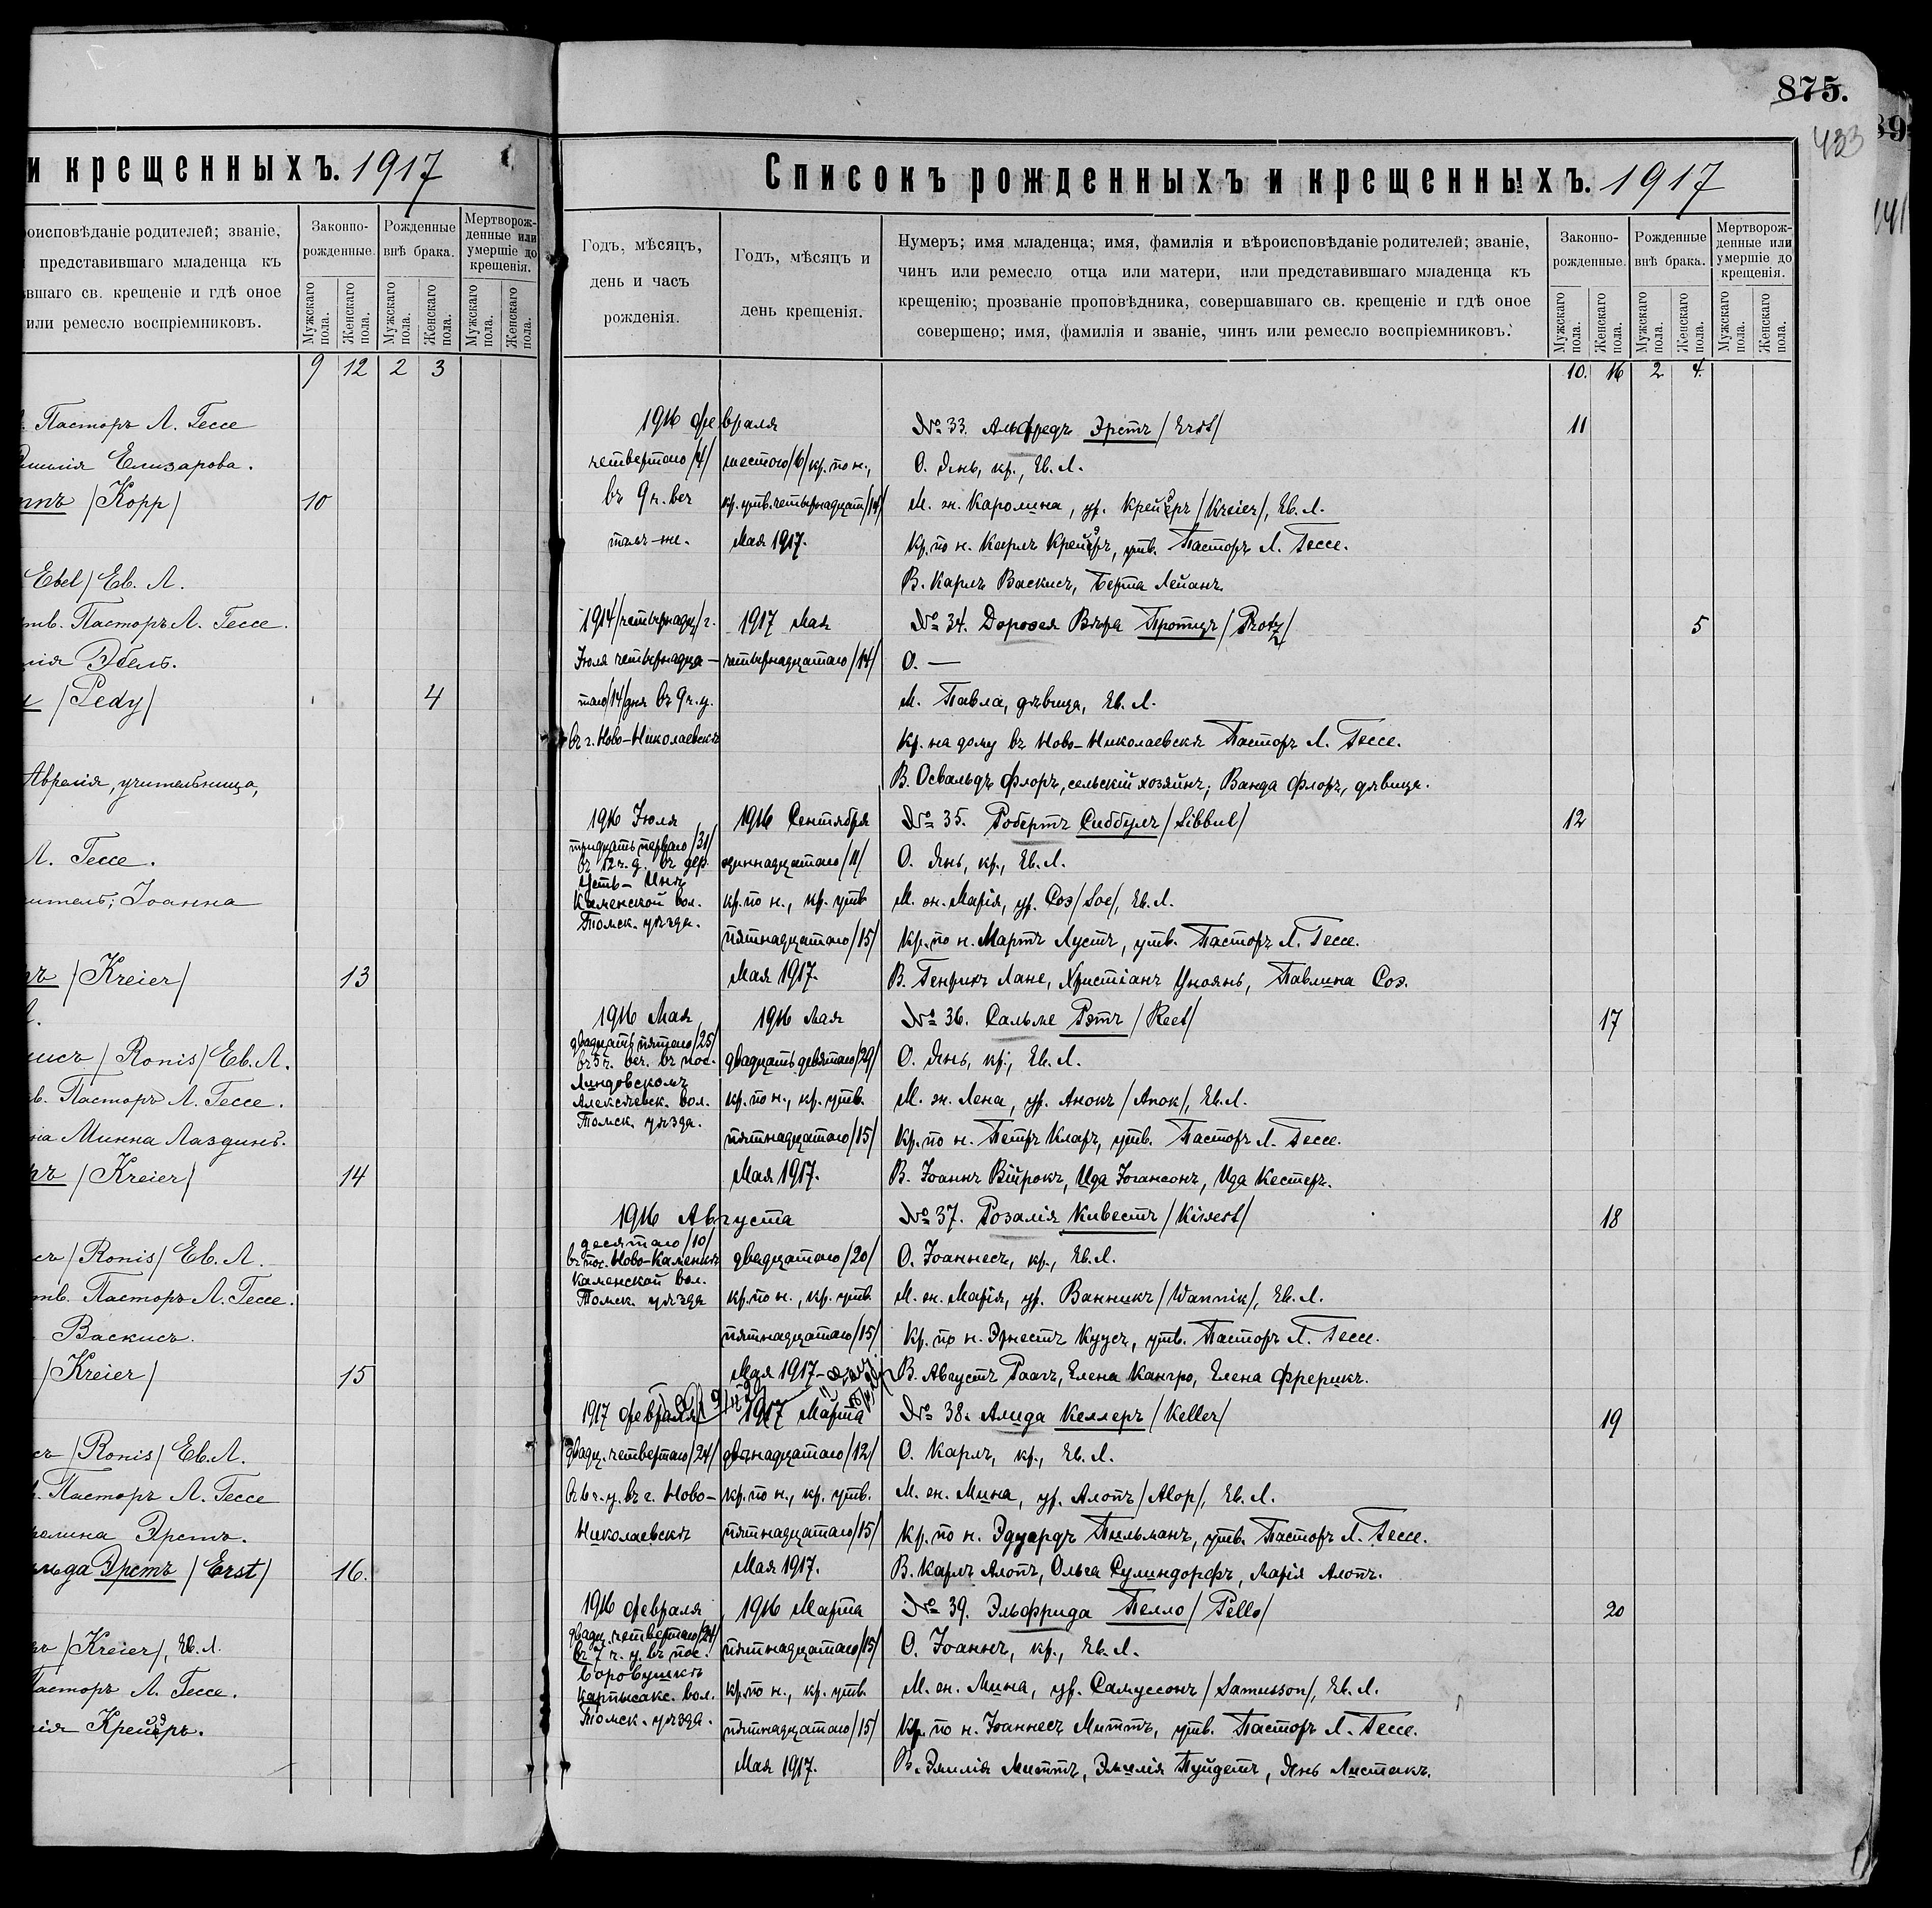 875.
433
и крещенныхъ. 1917
роисповѣданіе родителей; званіе,
представившаго младенца къ
вшаго св. крещеніе и гдѣ оное
или ремесло воспріемниковъ.
Законно-рожденные.
Рожденные внѣ брака.
Мертворож-денные или умершіе до крещенія.
Мужскаго пола.
Женскаго пола.
Мужскаго пола.
Женскаго пола.
Мужскаго пола.
Женскаго пола.
9 12 2 3
Пасторъ Л. Гессе
Елизарова.
/Kopp/ 10
Ebel/ Ев. Л.
утв. Пасторъ Л. Гессе.
Эбель.
/Pedy/ 4
Аврелія, учительница,
Л. Гессе.
Іоанна
/Kreier/ 13
/Ronis/ Ев. Л.
Пасторъ Л. Гессе.
Минна Лаздинъ.
/Kreier/ 14
/Ronis/ Ев. Л.
утв. Пасторъ Л. Гессе.
Васкисъ.
/Kreier/ 15
/Ronis/ Ев. Л.
Пасторъ Л. Гессе
Эрстъ.
Эрстъ /Erst/ 16.
/Kreier/, Ев. Л.
Пасторъ Л. Гессе.
Крейеръ.
Списокъ рожденныхъ и крещенныхъ. 1917
Годъ, мѣсяцъ,
день и часъ
рожденія.
Годъ, мѣсяцъ и
день крещенія.
Нумеръ; имя младенца; имя, фамилія и вѣроисповѣданіе родителей; званіе,
чинъ или ремесло отца или матери, или представившаго младенца къ
крещенію; прозваніе проповѣдника, совершавшаго св. крещеніе и гдѣ оное
совершено; имя, фамилія и званіе, чинъ или ремесло воспріемниковъ.
Законно-рожденные.
Рожденные внѣ брака.
Мертворож-денные или умершіе до крещенія.
Мужскаго пола.
Женскаго пола.
Мужскаго пола.
Женскаго пола.
Мужскаго пола.
Женскаго пола.
10. 16 2 4.
1916 февраля № 33. Альфредъ Эрстъ /Erst/ 11
четвертаго /4/ шестого /6/ кр. по н., О. Янь, кр., Ев. Л.
въ 9 ч. веч кр. утв. четырнадцат /14/ М. ж. Каролина, ур. Крейеръ /Kreier/, Ев. Л.
тамъ-же. Мая 1917. Кр. по н. Карлъ Крейеръ, утв. Пасторъ Л. Гессе.
В. Карлъ Васкисъ, Берта Лейанъ.
1914 /четырнадц/ г. 1917 Мая № 34. Доροѳея Вѣра Протцъ /Protz/ 5
Іюля четырнадца- четырнадцатаго /14/ О. —
таго /14/ дня въ 9 ч. у. М. Павла, дѣвица, Ев. Л.
въ г. Ново-Николаевскѣ Кр. на дому въ Ново-Николаевскѣ Пасторъ Л. Гессе.
В. Освальдъ Флоръ, сельскій хозяйнъ; Ванда Флоръ, дѣвица.
1916 Іюля 1916 Сентября № 35. Робертъ Сиббулъ /Sibbul/ 12
тридцать перваго /31/
въ 12 ч. д. въ дер. одиннадцатаго /11/ О. Янь, кр., Ев. Л.
Усть-Инѣ
Каменской вол. кр. по н., кр. утв М. ж. Марія, ур. Соэ /Soe/, Ев. Л.
Томск. уѣзда.
пятнадцатаго /15/ Кр. по н. Мартъ Лустъ, утв. Пасторъ Л. Гессе.
Мая 1917. В. Генрихъ Лане, Христіанъ Уноянь, Павлина Соэ.
1916 Мая 1916 Мая № 36. Сальме Рэтъ /Reet/ 17
двадцать пятаго /25/
въ 5 ч. веч. въ пос. двадцать девятаго /29/ О. Янь, кр., Ев. Л.
Линдовскомъ
Алексѣевск. вол. кр. по н., кр. утв. М. ж. Лена, ур. Анокъ /Anok/, Ев. Л.
Томск. уѣзда.
пятнадцатаго /15/ Кр. по н. Петръ Кларъ, утв. Пасторъ Л. Гессе.
Мая 1917. В. Іоаннъ Війрокъ, Ида Іогансонъ, Ида Кестеръ.
1916 Августа № 37. Розалія Кивестъ /Kivest/ 18
десятаго /10/
въ пос. Ново-Каменкѣ двадцатаго /20/ О. Іоаннесъ, кр., Ев. Л.
Каменской вол.
Томск. уѣзда кр. по н., кр. утв. М. ж. Марія, ур. Ванникъ /Wannik/, Ев. Л.
пятнадцатаго /15/ Кр. по н. Эрнестъ Куусъ, утв. Пасторъ Л. Гессе.
Мая 1917 В. Августъ Раагъ, Елена Кангро, Елена Фрерикъ.
1917 Февраля 1917 Марта № 38. Алида Келлеръ /Keller/ 19
двадц. четвертаго /24/ двѣнадцатаго /12/ О. Карлъ, кр., Ев. Л.
въ 6 ч. у. въ г. Ново- кр. по н., кр. утв. М. ж. Мина, ур. Алопъ /Alop/, Ев. Л.
Николаевскѣ пятнадцатаго /15/ Кр. по н. Эдуардъ Тильманъ, утв. Пасторъ Л. Гессе.
Мая 1917. В. Карлъ Алопъ, Ольга Сулиндорфъ, Марія Алопъ.
1916 Февраля 1916 Марта № 39. Эльфрида Пелло /Pello/ 20
двадц. четвертаго /24/
въ 7 ч. у. въ пос. пятнадцатаго /15/ О. Іоаннъ, кр., Ев. Л.
Боровушкѣ
Карпысакс. вол. кр. по н., кр. утв. М. ж. Мина, ур. Самуссонъ /Samusson/, Ев. Л.
Томск. уѣзда. пятнадцатаго /15/ Кр. по н. Іоаннесъ Миттъ, утв. Пасторъ Л. Гессе.
Мая 1917. В. Эмилія Миттъ, Эмилія Пуйдетъ, Янь Листакъ.